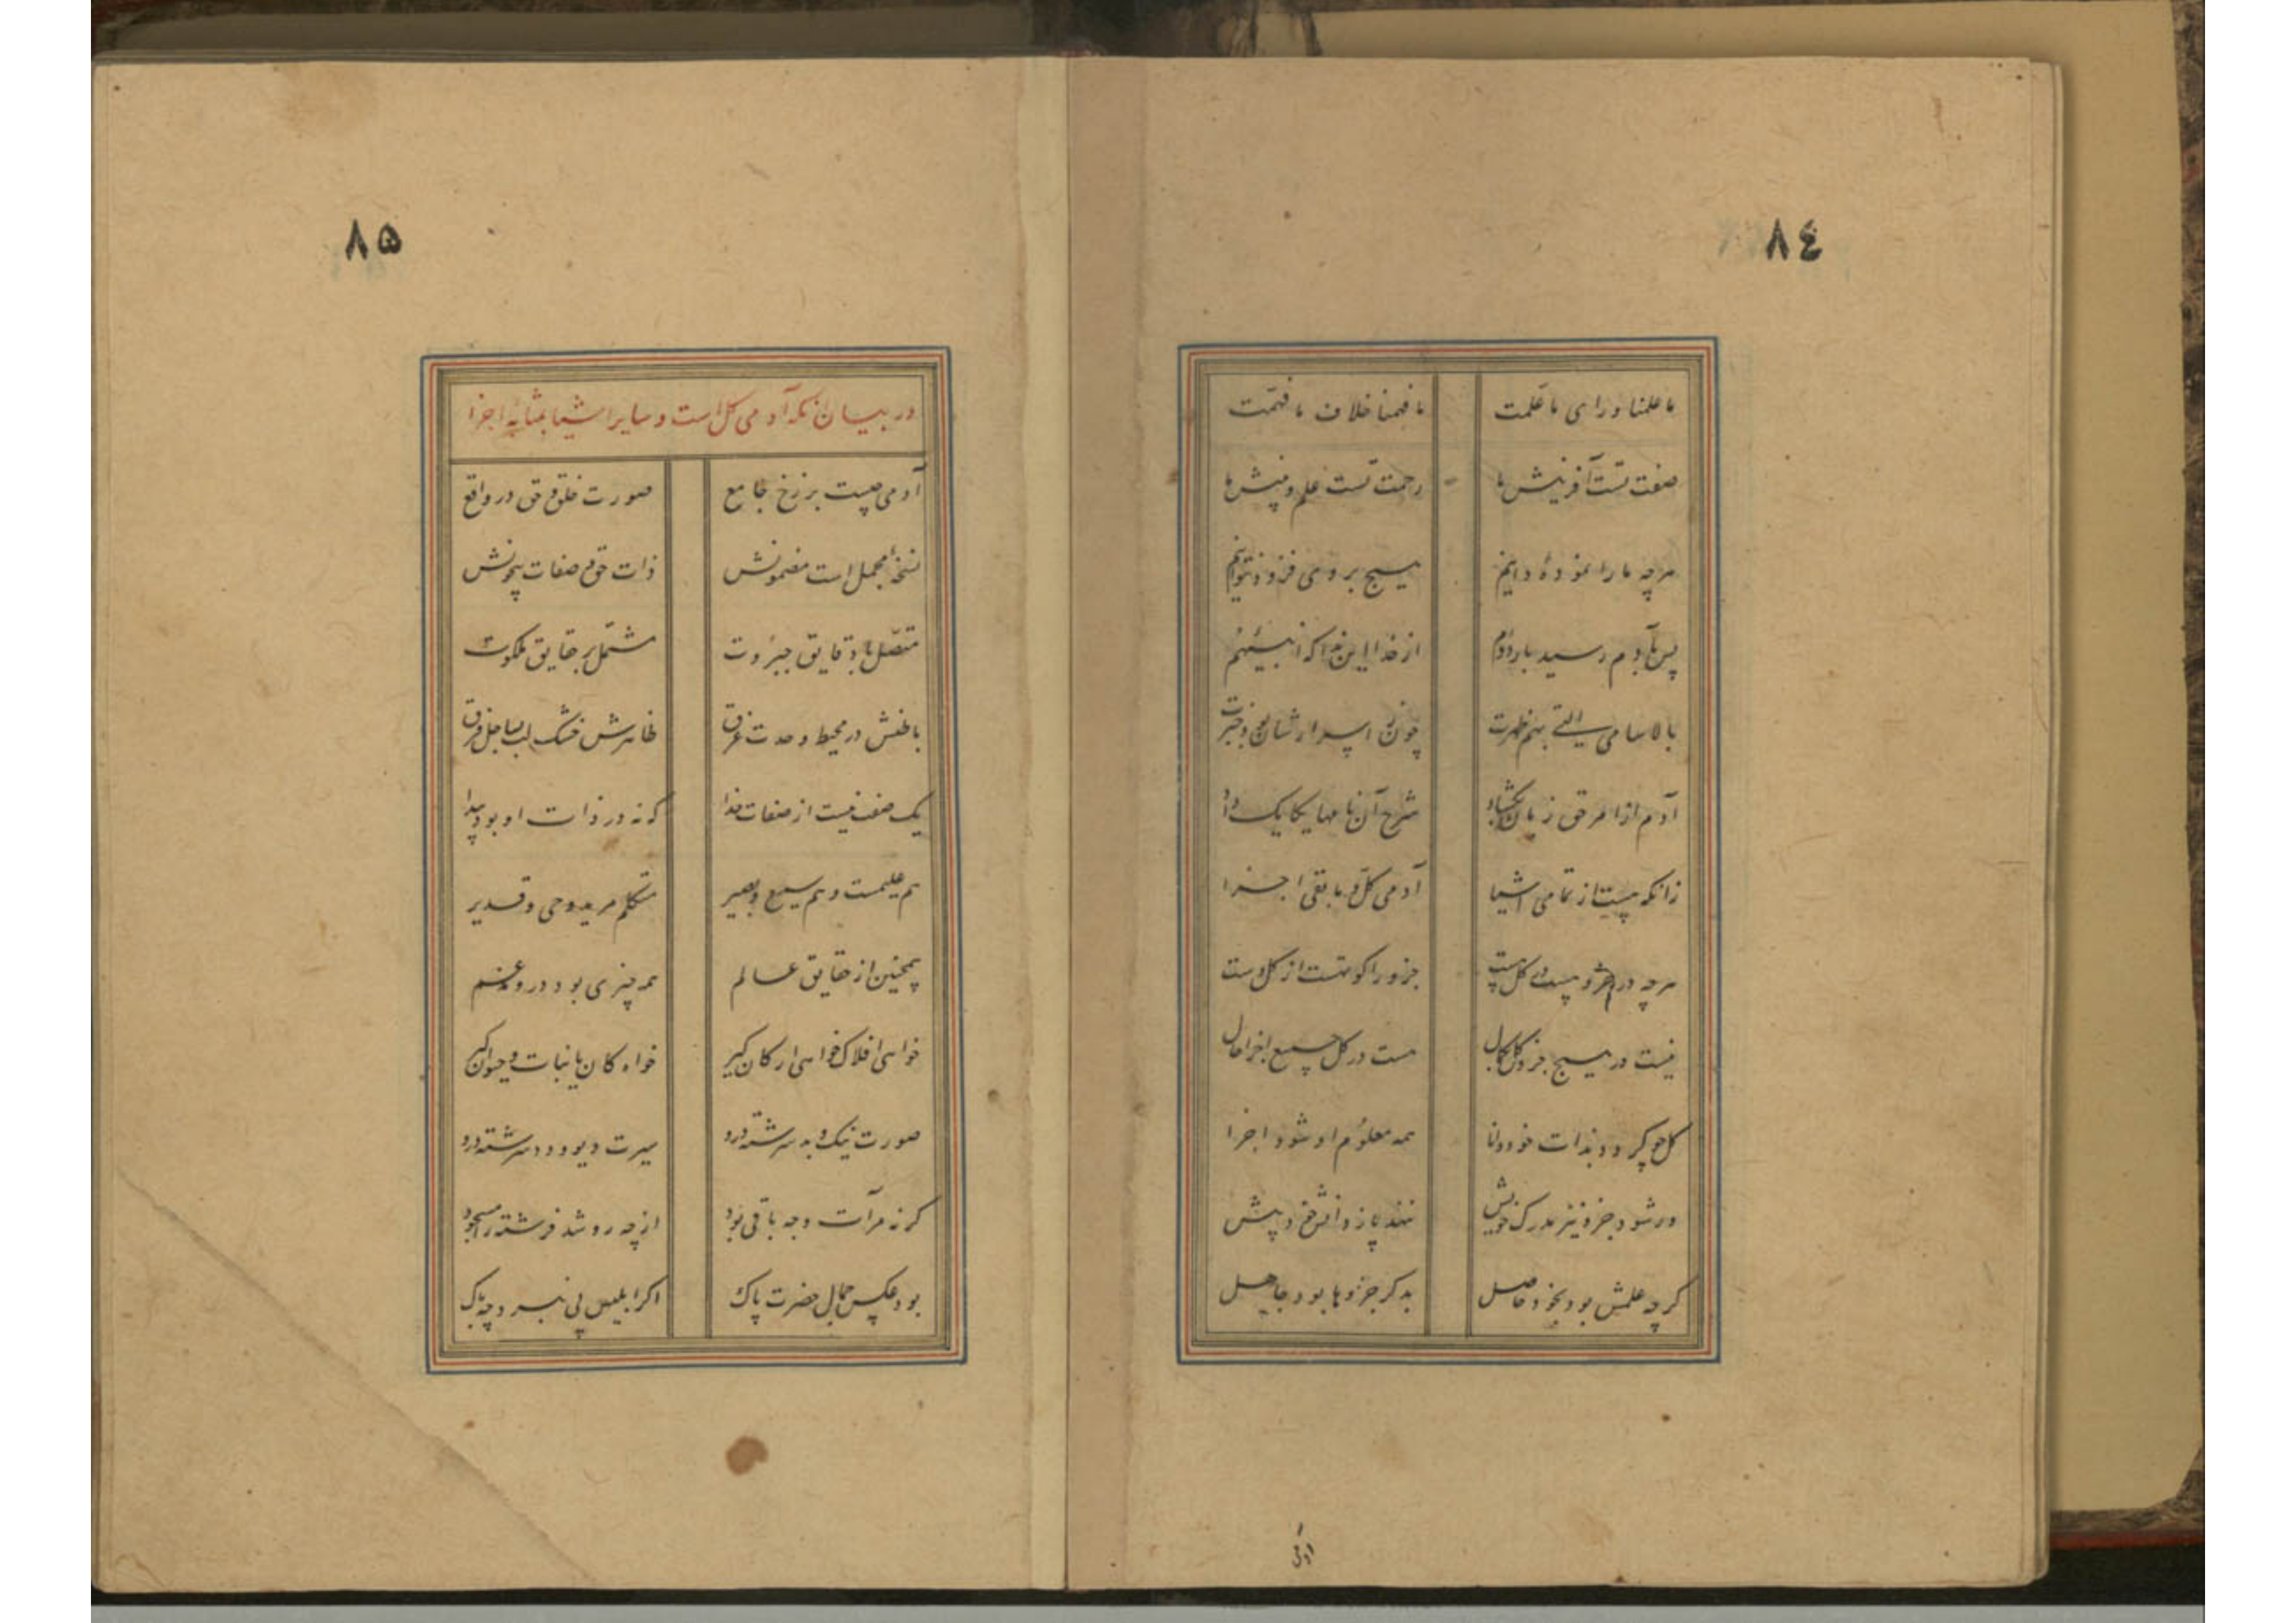 ٨٤
ما علمنا ورای ما علمت ما فهمنا خلاف ما فهمت
صنعت تست آفرینش ما رحمت تست علم و بینش ما
هرچه ما را نمودهٔ دانیم هیچ بر وی فزود نتوانیم
پس بآدم رسید بار دوم از خدا این ندا که انبئهم
بالاسامی التی بهم ظهرت چون ز اسرارشان بود خبرت
آدم از امر حق زبان بگشاد شرح آن نامها یکایک داد
زانکه هست از تمامی اشیا آدمی کل و مابقی اجزا
هرچه در جزو هست در کل هست جزو را کو هست از کل است
نیست در هیچ جزو کل بکمال هست در کل جمیع اجزا حال
کل چو گردد بذات خود دانا همه معلوم او شود اجزا
ور شود جزو نیز مدرک خویش ننهد پا ز دانش خود پیش
گرچه علمش بود بخود حاصل بدگر جزوها بود جاهل
آدمی
٨۵
در بیان آنکه آدمی کل است و سایر اشیا بمثابهٔ اجزا
آدمی چیست برزخ جامع صورت خلق و حق در واقع
نسخهٔ مجمل است مضمونش ذات حق و صفات بیچونش
متصل با دقایق جبروت مشتمل بر حقایق ملکوت
باطنش در محیط وحدت غرق ظاهرش خشک لب بساحل فرق
یک صفت نیست از صفات خدا که نه در ذات او بود پیدا
هم علیمست و هم سمیع و بصیر متکلم مرید و حی و قدیر
همچنین از حقایق عالم همه چیزی بود درو مدغم
خواهی افلاک خواهی ارکان گیر خواه کان یا نبات و حیوان گیر
صورت نیک و بد سرشته درو سیرت دیو و دد سرشته درو
گر نه مرآت وجه باقی بود از چه رو شد فرشته را مسجود
بود عکس جمال حضرت پاک اگر ابلیس پی نبرد چه باک